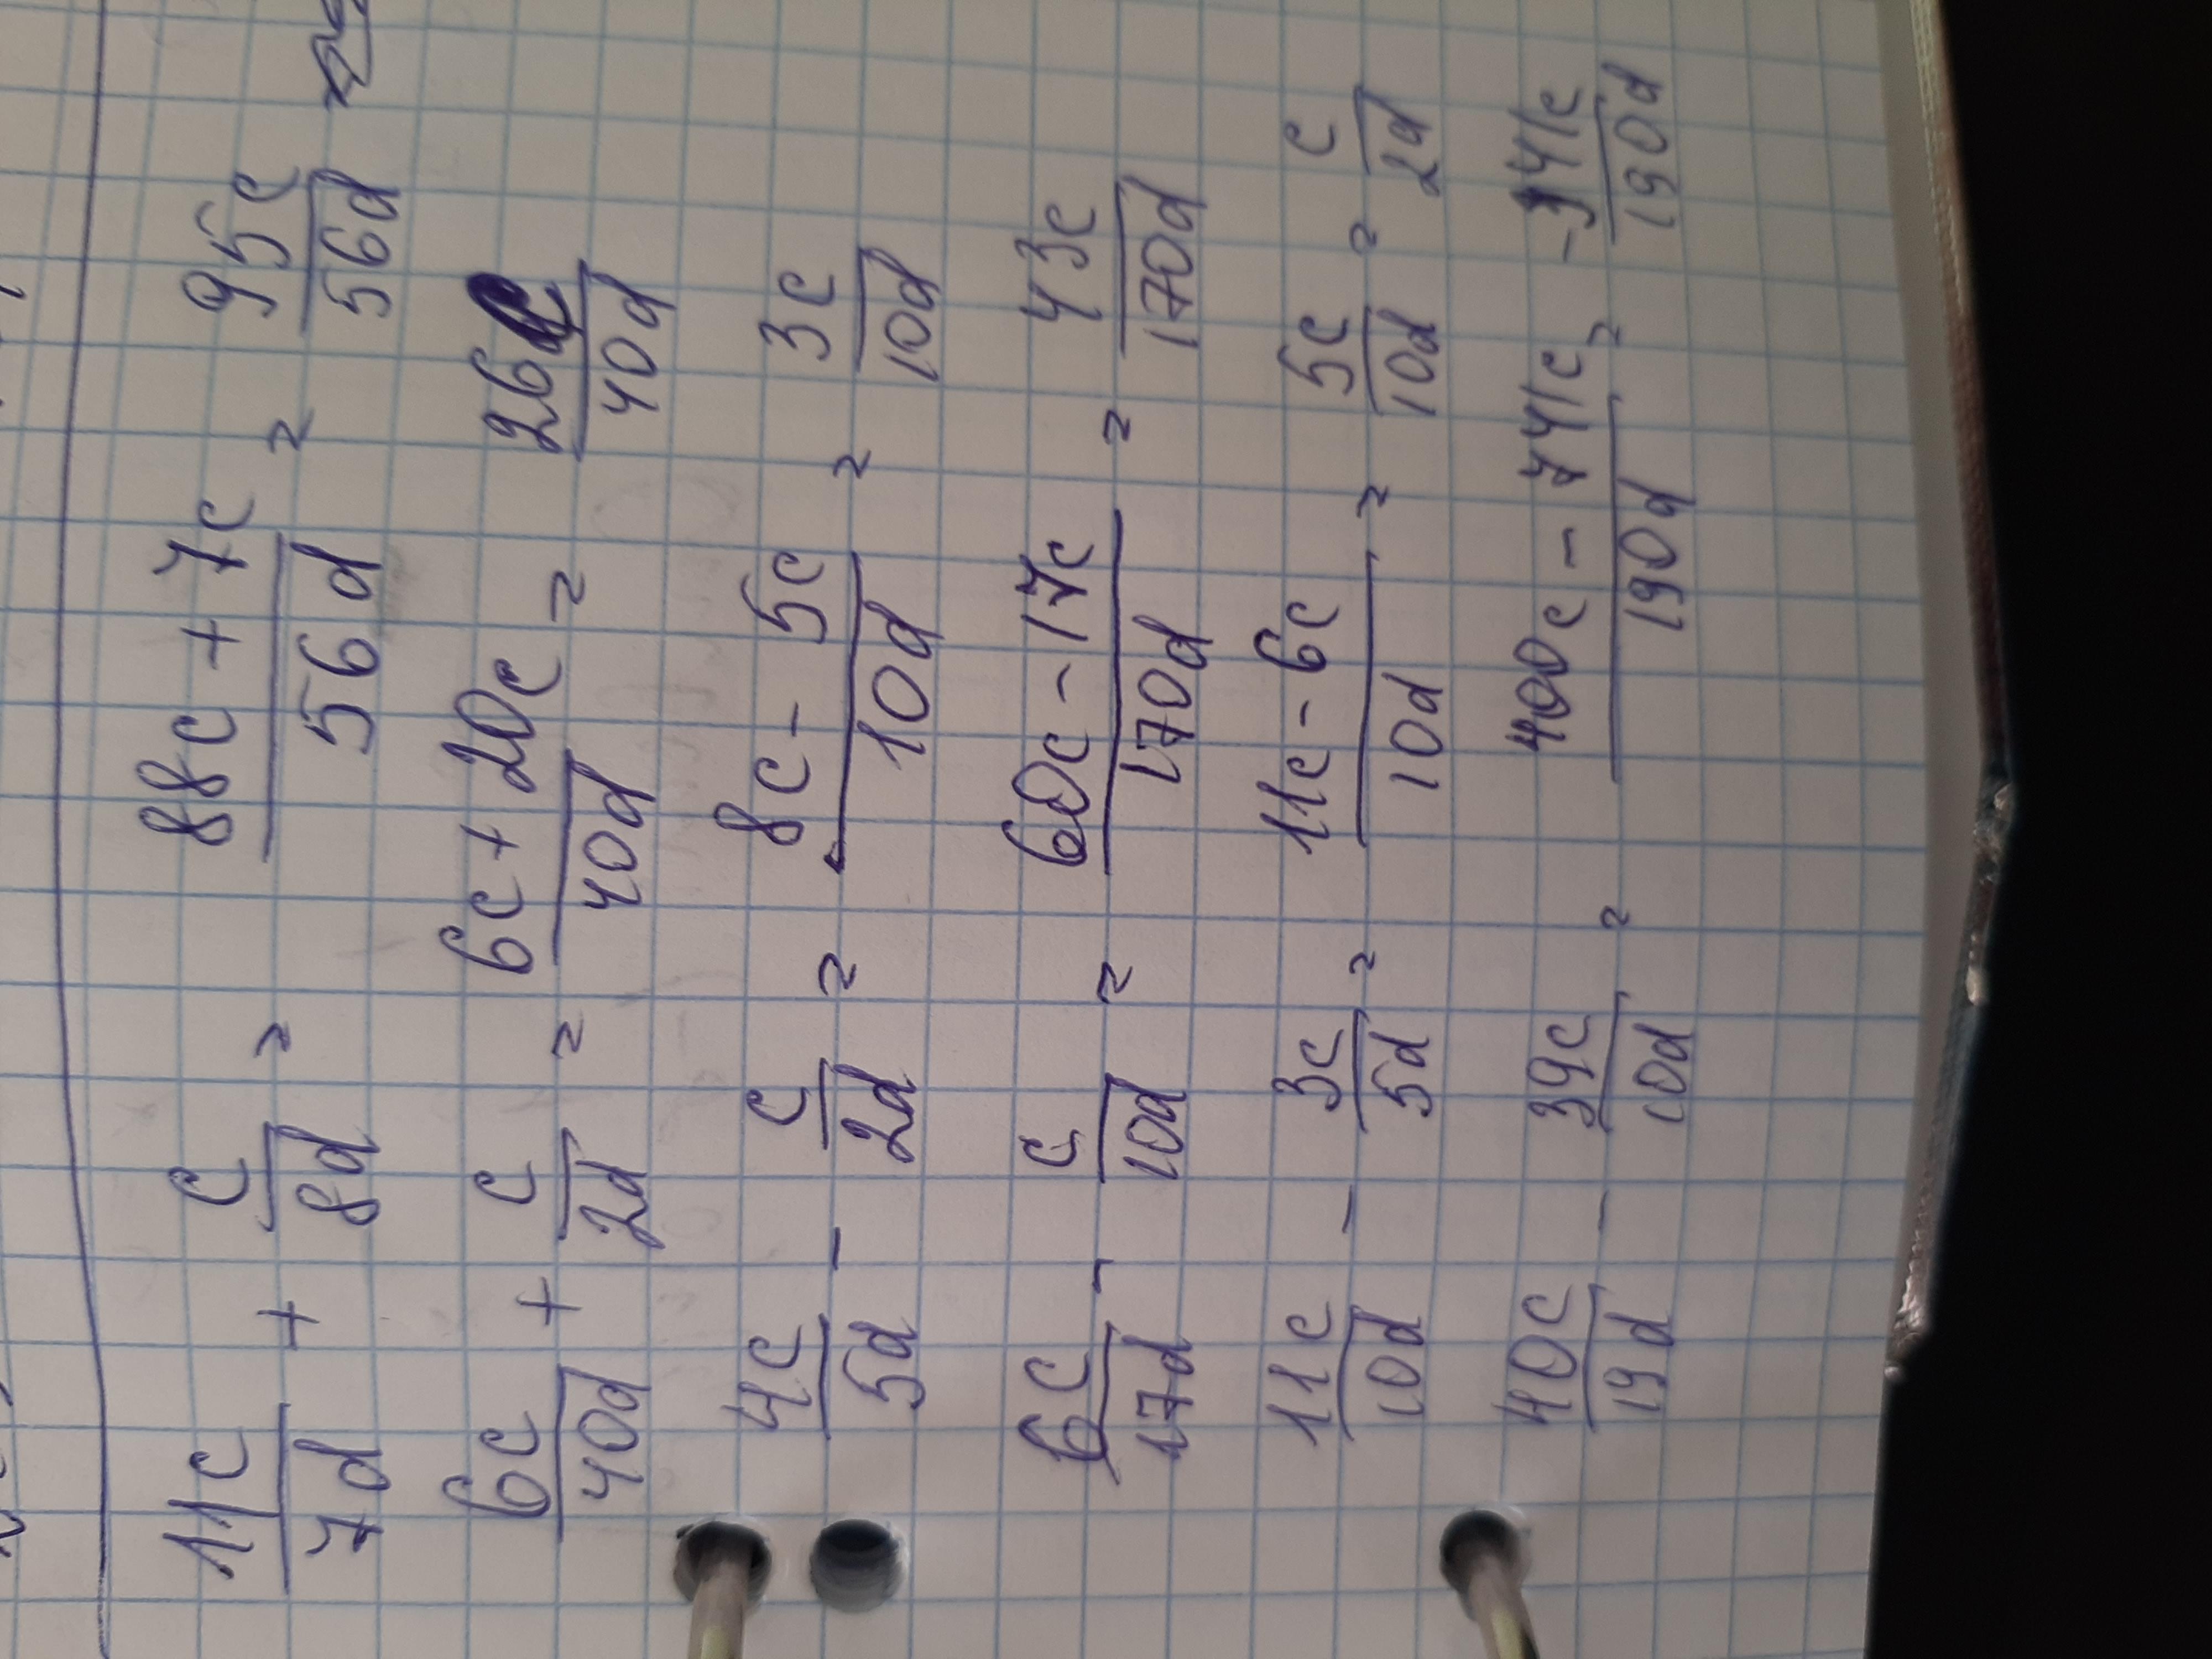 11c/7d + c/8d = (88c + 7c)/56d = 95c/56d
6c/40d + c/2d = (6c + 20c)/40d = 26c/40d
4c/5d - c/2d = (8c - 5c)/10d = 3c/10d
6c/17d - c/10d = (60c - 17c)/170d = 43c/170d
11c/10d - 3c/5d = (11c - 6c)/10d = 5c/10d = c/2d
40c/19d - 39c/10d = (400c - 741c)/190d = -341c/190d